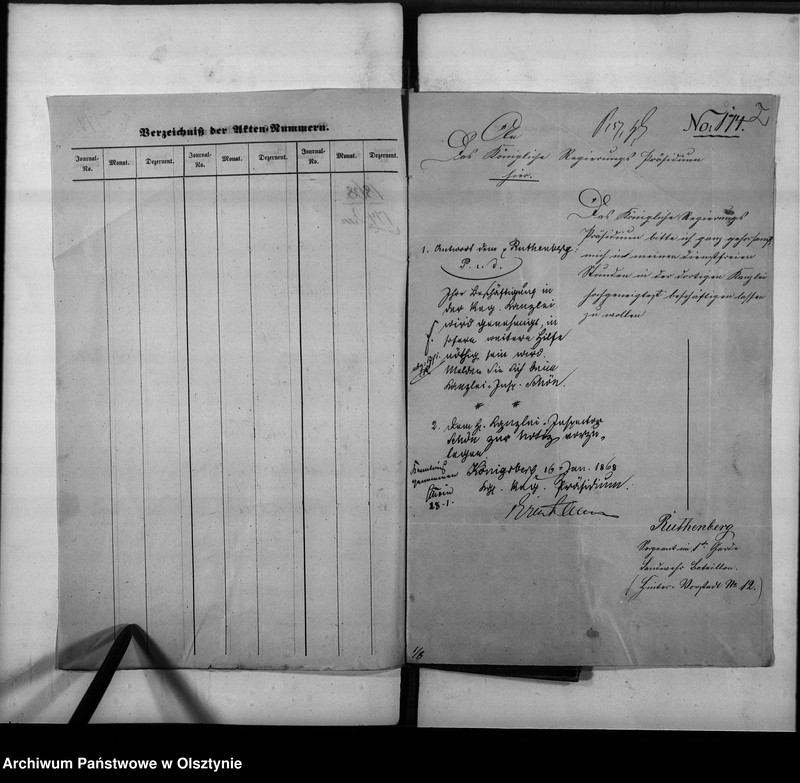 Verzeichniß der Akten-Nummern.
Journal-No. Monat. Dezernent. Journal-No. Monat. Dezernent. Journal-No. Monat. Dezernent.
No: 174. 2
An
Das Königliche Regierungs Präsidium
hier.
Das Königliche Regierungs
Präsidium bitte ich ganz gehorsamst,
mich in meinen dienstfreien
Stunden in der dortigen Kanzlei
hochgeneigtest beschäftigen lassen
zu wollen
Ruthenberg
Sergeant im 1ten Garde
Landwehr Bataillon.
(Hinter-Vorstadt No 12.)
1. Antwort dem p Ruthenberg:
Ihre Beschäftigung in
der Reg. Kanzlei
wird genehmigt, in
sofern weitere Hilfe
nöthig sein wird.
Melden Sie sich beim
Kanzlei-Insp. Schön.
2. dem H. Kanzlei-Inspector
Schön zur Notiz vorzu-
legen
Königsberg 16 Jan. 1868
Kgl. Reg. Präsidium.
Kenntniß
genommen
Schön
28-1.
1/8
Archiwum Państwowe w Olsztynie